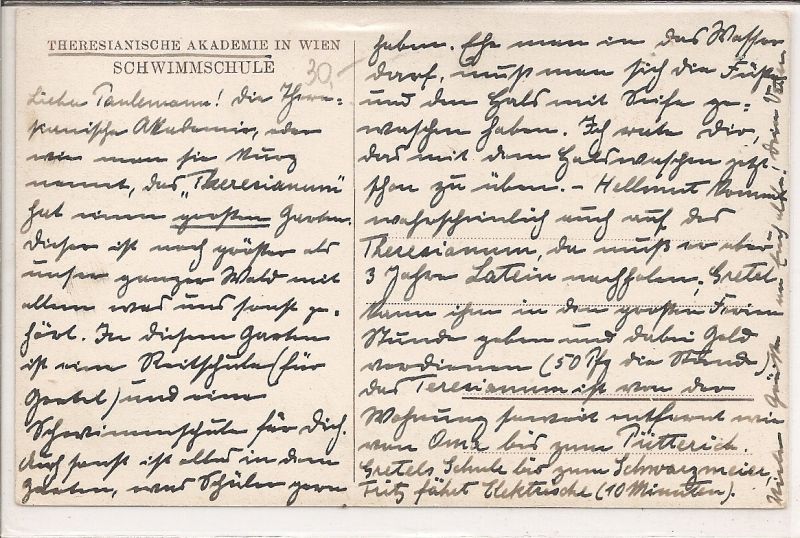 THERESIANISCHE AKADEMIE IN WIEN
SCHWIMMSCHULE
30,-
Lieber Paulemann! Die There-
sianische Akademie, oder
wie man sie kurz
nennt, das „Theresianum"
hat einen großen Garten.
Dieser ist noch größer als
unser ganzer Wald mit
allem was uns sonst ge-
hört. In diesem Garten
ist eine Reitschule (für
Gretel) und eine
Schwimmschule für dich.
Auch sonst ist alles in dem
Garten, was Schüler gern
haben. Ehe man in das Wasser
darf, muß man sich die Füße
und den Hals mit Seife ge-
waschen haben. Ich rate Dir,
das mit dem Halswaschen jetzt
schon zu üben. - Hellmut kommt
wahrscheinlich auch auf das
Theresianum, da muß er aber
3 Jahre Latein nachholen. Gretel
kann ihm in den großen Ferien
Stunde geben und dabei Geld
verdienen (50 Pfg die Stunde)
Das Teresianum ist von der
Wohnung soweit entfernt wie
von Oma bis zum Pütterich.
Gretels Schule bis zum Schwarzmeier,
Fritz fährt Elektrische (10 Minuten).
Viele Grüße an Euch alle! Dein Vater